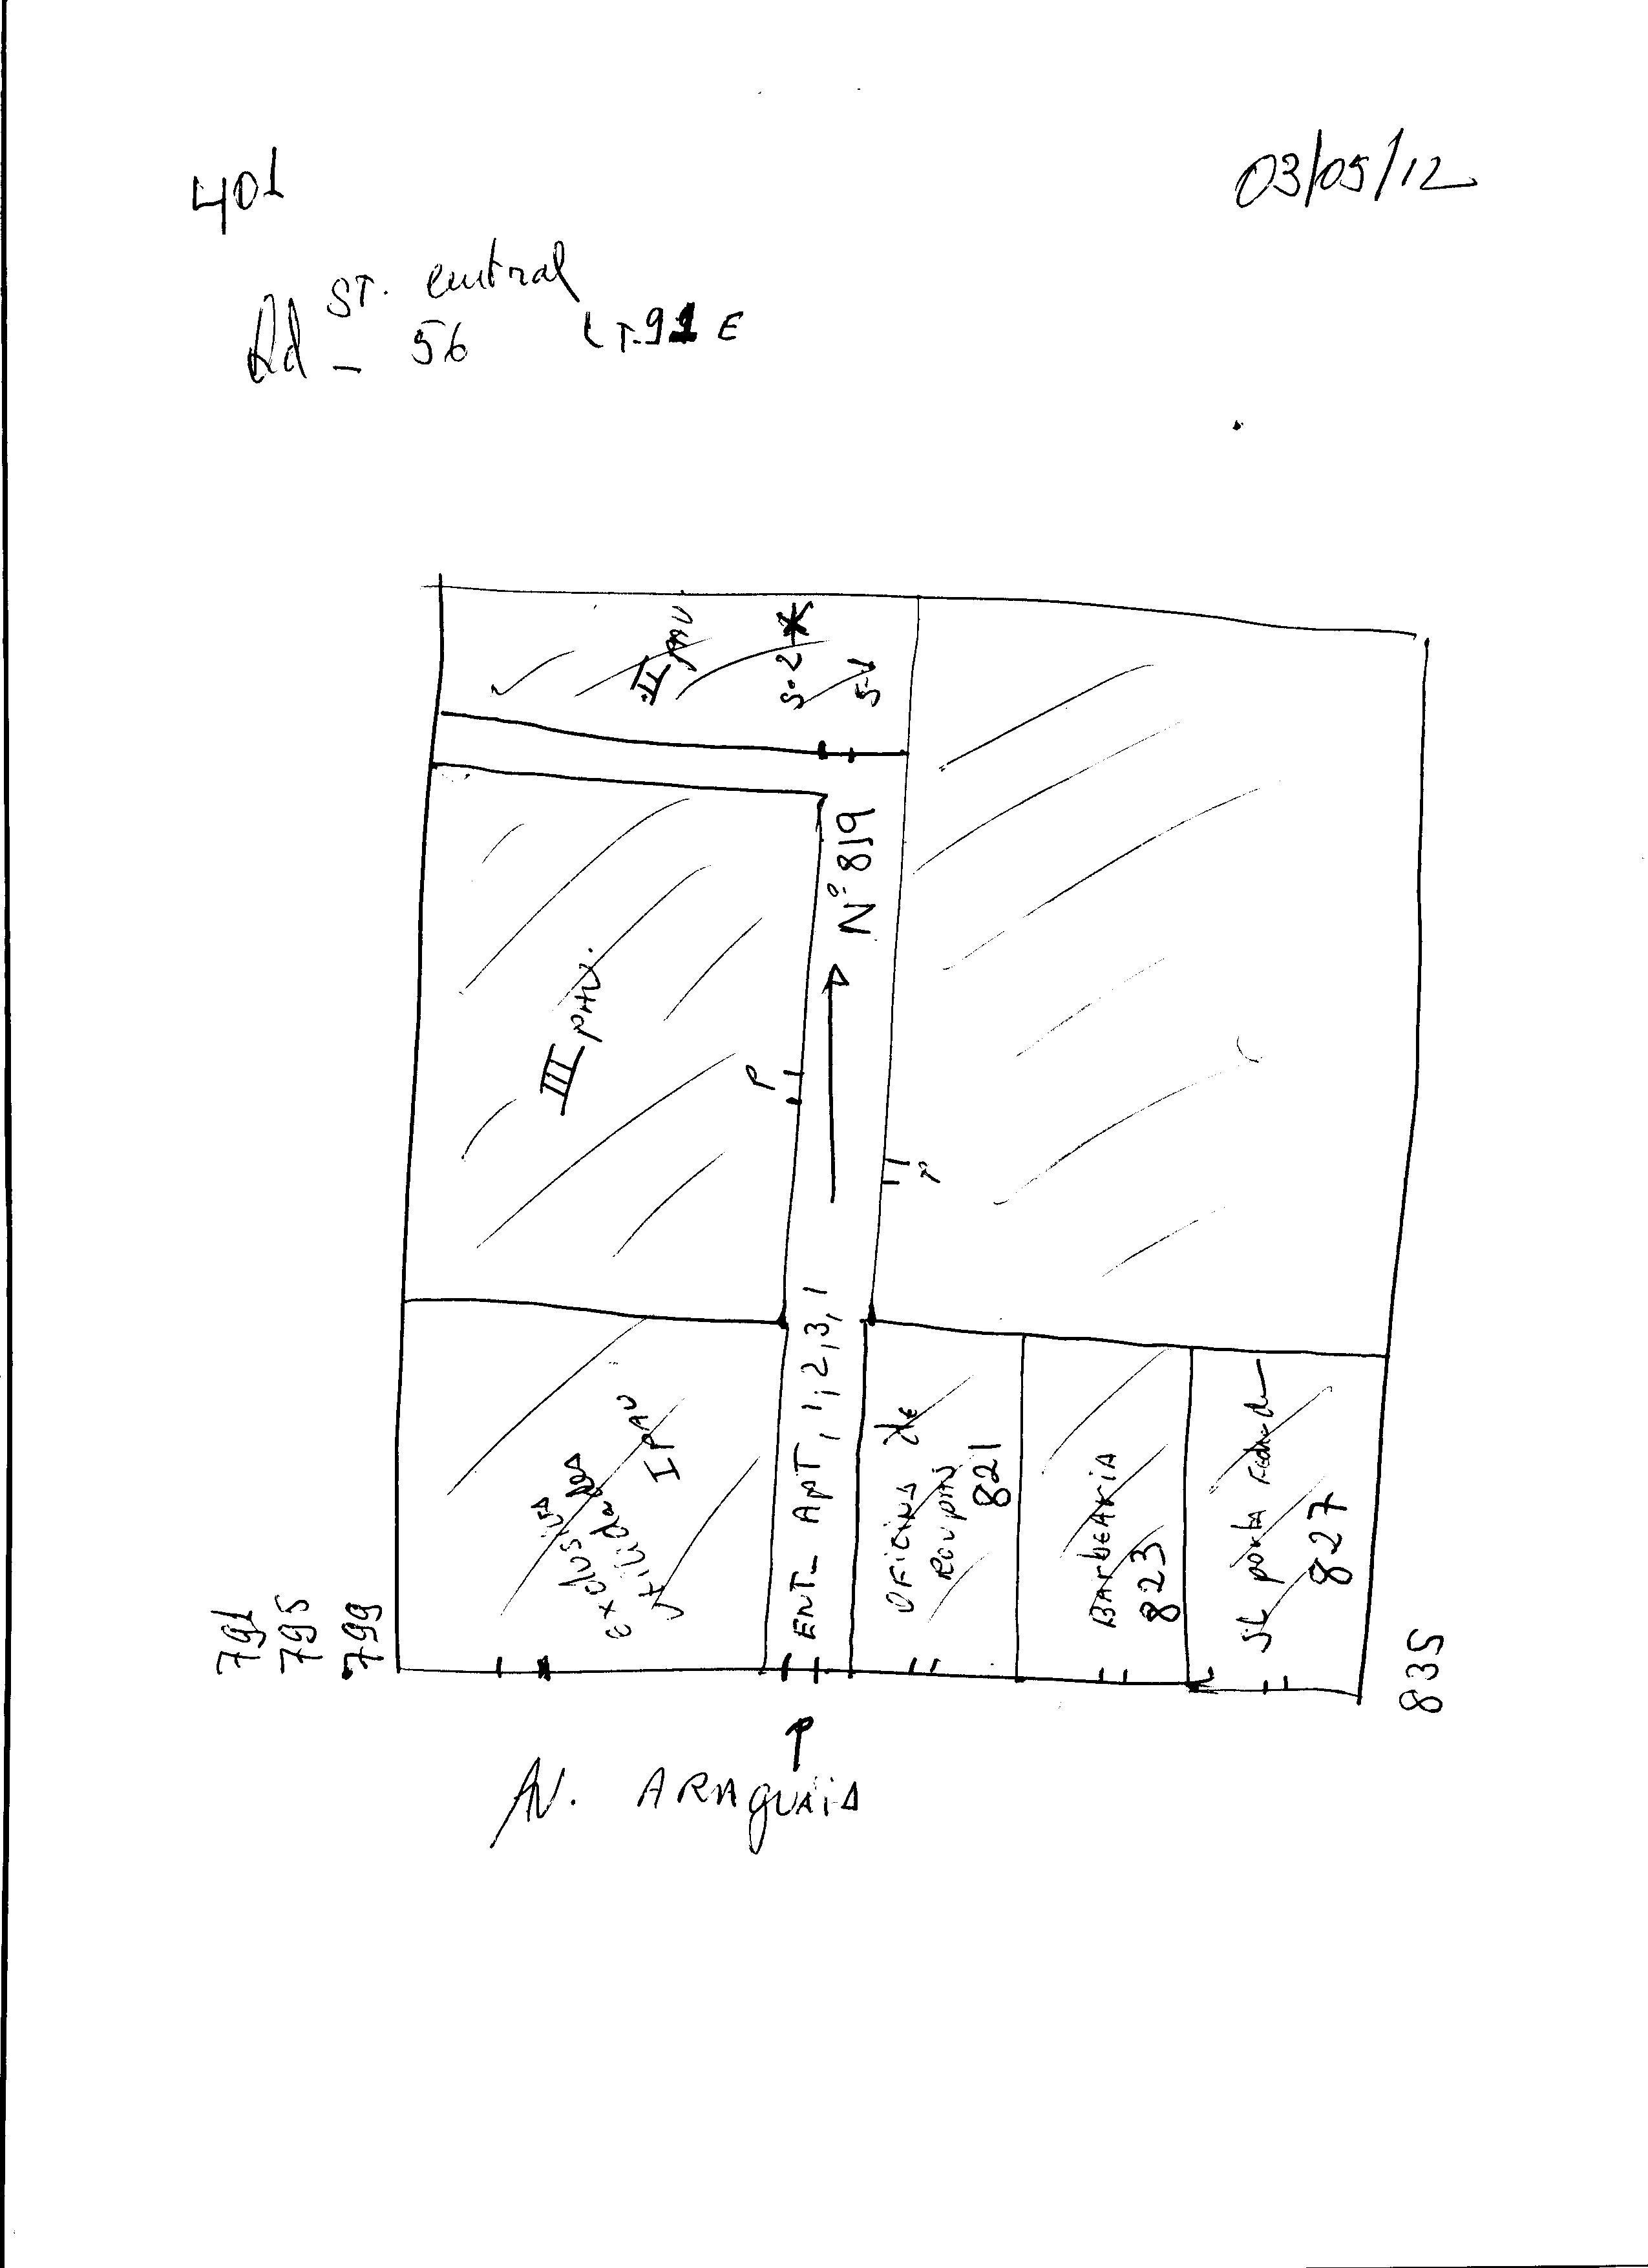 401
03/05/12
ST. Central
Qd - 56 LT.91 E
II PAV
S-2
S-1
III PAV.
Nº 819
P
P
ENT- APT, 1, 2, 3, 1
exclusivas
utilidades
I PAV
OFICINA de
ROUPAS
821
BARbEARIA
823
SL porta
827
791
795
799
835
AV. ARAGUAIA